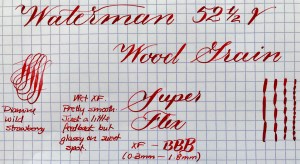 Waterman 52½ V
Wood Grain
Super
Flex
XF – BBB
(0.3mm – 1.8mm)
Wet XF
Pretty smooth
Just a little
feedback but
glassy on sweet
spot.
Diamine
wild
strawberry